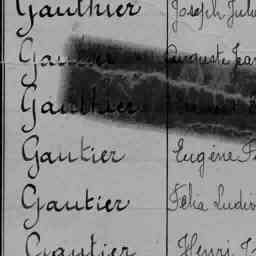 Gauthier Joseph Jule
Gau Auguste Jea
Gauthier
Gautier Eugène F
Gautier Félia Ludiv
Gautier Henri J